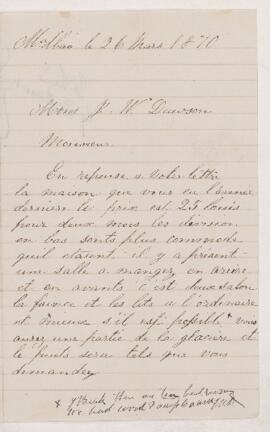 Malbaie le 26 Mars 1870
J. W. Dawson
Monsieur
En reponse a votre lettre
la maison que vous eu l'année
derniere le prix est 25 louis
pour deux mois les division
en bas sont plus commode
quil etaient il y a présent
une salle a manger en ariere
et en avant c'est deux salon
la faience et les lits a l'ordinaire
et mieux s'il est possible + vous
aurez une partie de la glaciere et
le fruits sera tels que vous
demandez
x
we had used